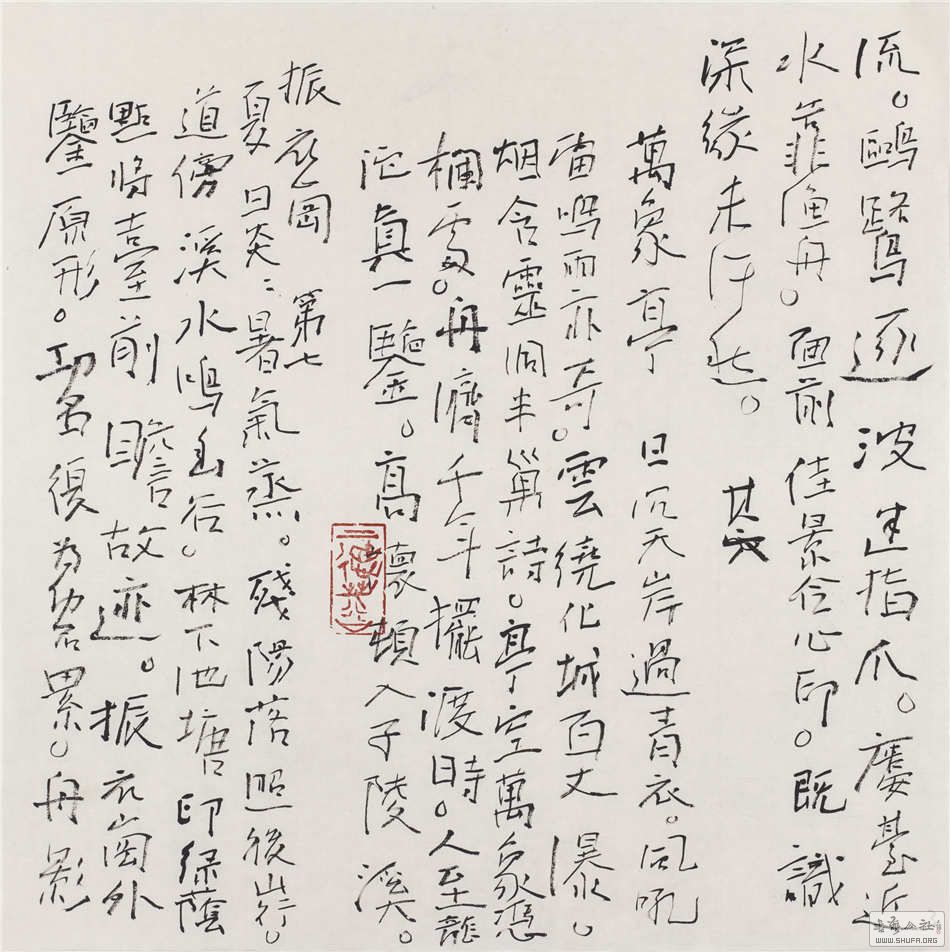 流。鷗鷺逐波連指爪。廔臺近
水靠漁舟。面前佳景合心印。既識
深緣未行愁。其六
萬象亭 日沉天岸過青衣。風吼
雷鳴雨亦奇。雲繞化城百丈瀑。
烟含靈洞半巢詩。亭空萬象憑
欄處。舟濟千年擺渡時。人至龍
沱真一鑒。高懷頓入子陵溪。
振衣岡 第七
夏日炎〻暑氣蒸。殘陽落照後山行。
道傍溪水鳴幽谷。林下池塘印綠蔭
點將臺前瞻故迹。振衣崗外
鑒原形。功名須為功名累。舟影
WWW.SHUFA.ORG